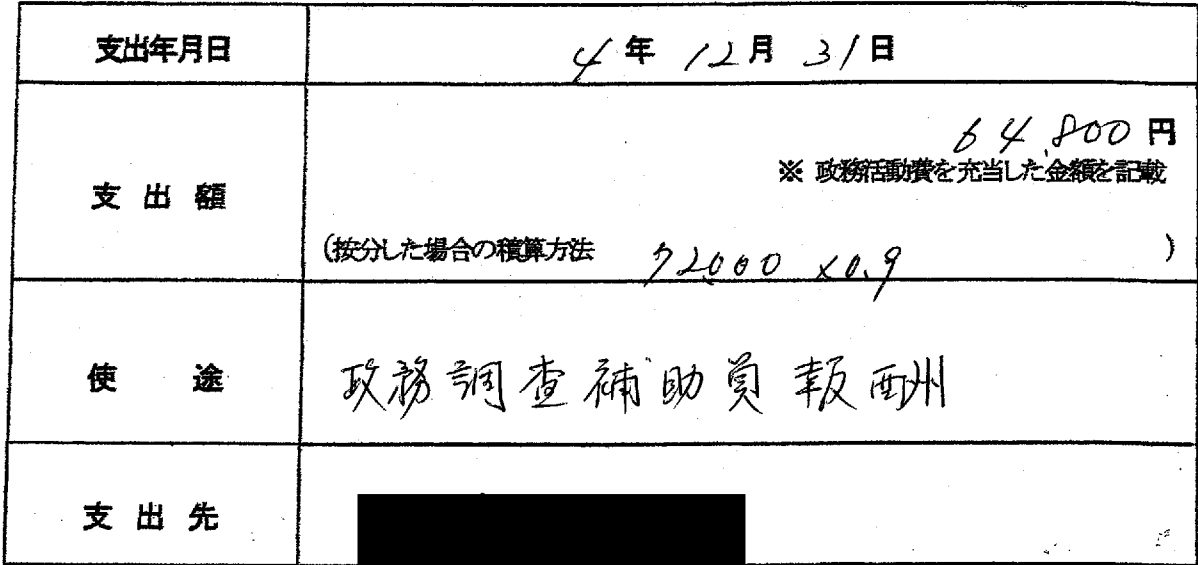 支出年月日 4年12月31日
64,800円
※ 政務活動費を充当した金額を記載
支出額
(按分した場合の積算方法 72,000 ×0.9 )
使途 政務調査補助員報酬
支出先